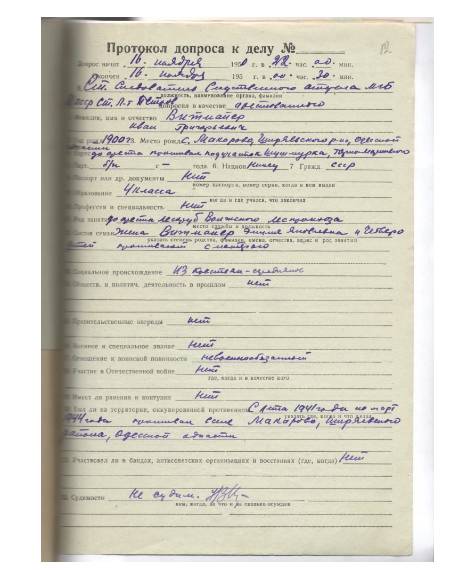 12
Протокол допроса к делу №
Допрос начат 16 ноября 1950 г. в 22 час. 00 мин.
Окончен 16 ноября 1950 г. в 00 час. 30 мин.
Ст. Следователь Следственного отдела МГБ
должность, наименование органа, фамилия
ССР Ст. Л-т
допросил в качестве арестованного
Фамилия, имя и отчество Витмайер
Иван Григорьевич
1900 г. 3. Место рожд. с. Макорово, Ширяевского р-на, Одесской
до ареста проживал
6. Национ. Немец 7. Гражд. СССР
Паспорт или др. документы Нет
номер паспорта, номер серии, когда и кем выдан
Образование 4 класса
когда и где учился, что закончил
Профессия и специальность нет
до ареста лесоруб
место службы и должность
Состав семьи Жена Витмайер Яковлевна и четверо
указать степень родства, фамилия, имена, отчества, адрес и род занятий
детей проживают с матерью
Социальное происхождение из крестьян-середняков
Обществ. и политич. деятельность в прошлом нет
Правительственные награды нет
Военное и специальное звание Нет
Отношение к воинской повинности невоеннообязанный
Участие в Отечественной войне Нет
где, когда и в качестве кого
Имел ли ранения и контузии Нет
Был ли на территории, оккупированной противником С лета 1941 года по март
указать где, когда и что делал
1944 года проживал селе Макорово, Ширяевского
района, Одесской области
Участвовал ли в бандах, антисоветских организациях и восстаниях (где, когда) Нет
Судимости Не судим.
кем, когда, за что и на сколько осужден